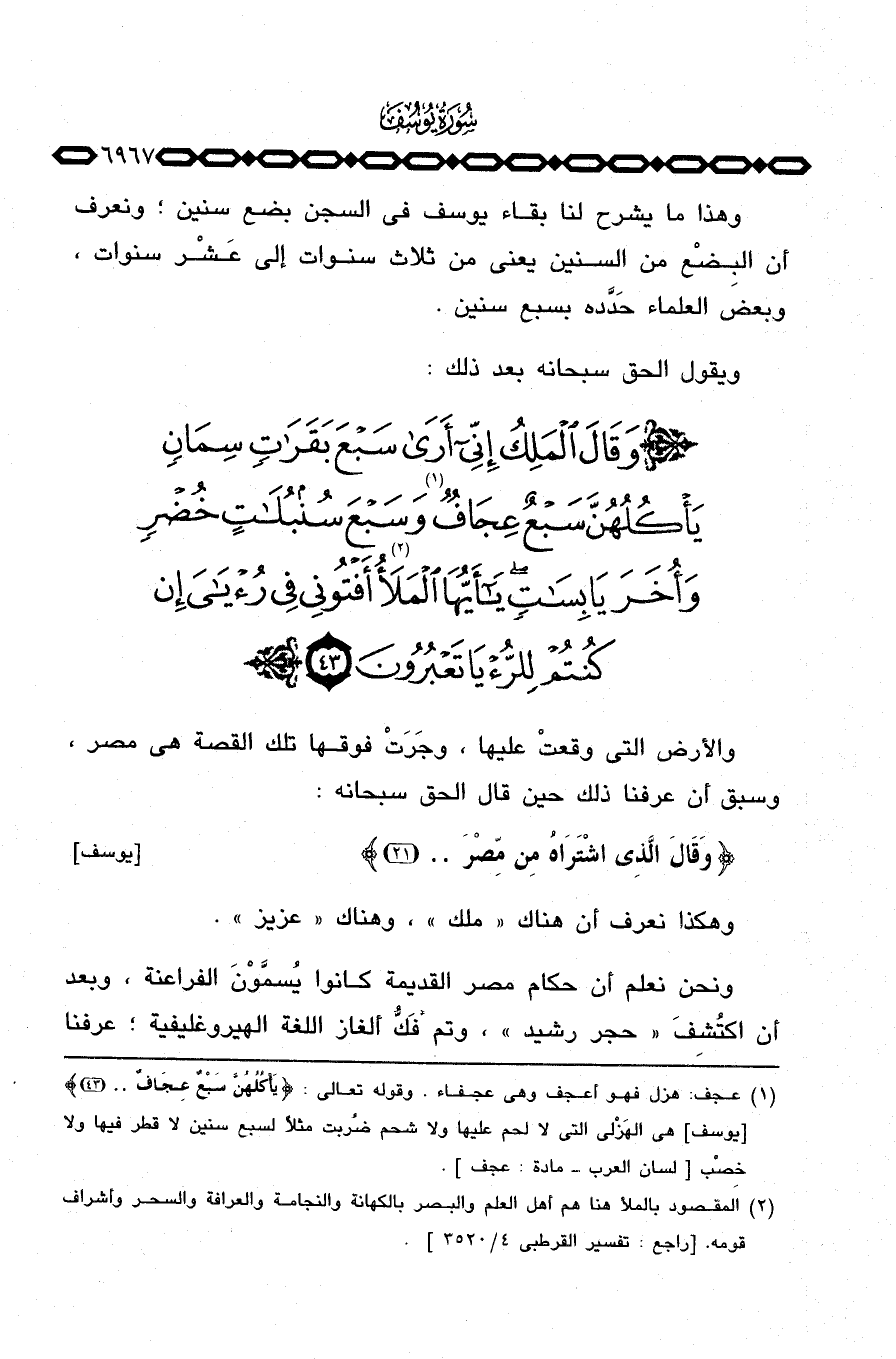 سُورَةُ يُوسُفَ
٦٩٦٧
وهذا ما يشرح لنا بقاء يوسف فى السجن بضع سنين ؛ ونعرف
أن البِضْع من السنين يعنى من ثلاث سنوات إلى عَشْر سنوات ،
وبعض العلماء حَدَّده بسبع سنين .
ويقول الحق سبحانه بعد ذلك :
وَقَالَ ٱلْمَلِكُ إِنِّىٓ أَرَىٰ سَبْعَ بَقَرَٰتٍ سِمَانٍ
يَأْكُلُهُنَّ سَبْعٌ عِجَافٌ (١) وَسَبْعَ سُنۢبُلَٰتٍ خُضْرٍ
وَأُخَرَ يَابِسَٰتٍ ۖ يَٰٓأَيُّهَا ٱلْمَلَأُ (٢) أَفْتُونِى فِى رُءْيَٰىَ إِن
كُنتُمْ لِلرُّءْيَا تَعْبُرُونَ ٤٣
والأرض التى وقعتْ عليها ، وجَرَتْ فوقها تلك القصة هى مصر ،
وسبق أن عرفنا ذلك حين قال الحق سبحانه :
﴿ وَقَالَ الَّذِى اشْتَرَاهُ مِن مِّصْرَ .. (٢١) ﴾ [يوسف]
وهكذا نعرف أن هناك « ملك » ، وهناك « عزيز » .
ونحن نعلم أن حكام مصر القديمة كانوا يُسمَّوْنَ الفراعنة ، وبعد
أن اكتُشِفَ « حجر رشيد » ، وتم فَكُّ ألغاز اللغة الهيروغليفية ؛ عرفنا
(١) عجف: هزل فهو أعجف وهى عجفاء . وقوله تعالى : ﴿ يَأْكُلُهُنَّ سَبْعٌ عِجَافٌ .. (٤٣) ﴾
[يوسف] هى الهَزْلى التى لا لحم عليها ولا شحم ضُربت مثلاً لسبع سنين لا قطر فيها ولا
خصْب [ لسان العرب - مادة : عجف ] .
(٢) المقصود بالملأ هنا هم أهل العلم والبصر بالكهانة والنجامة والعرافة والسحر وأشراف
قومه. [راجع : تفسير القرطبى ٤/ ٣٥٢٠ ] .